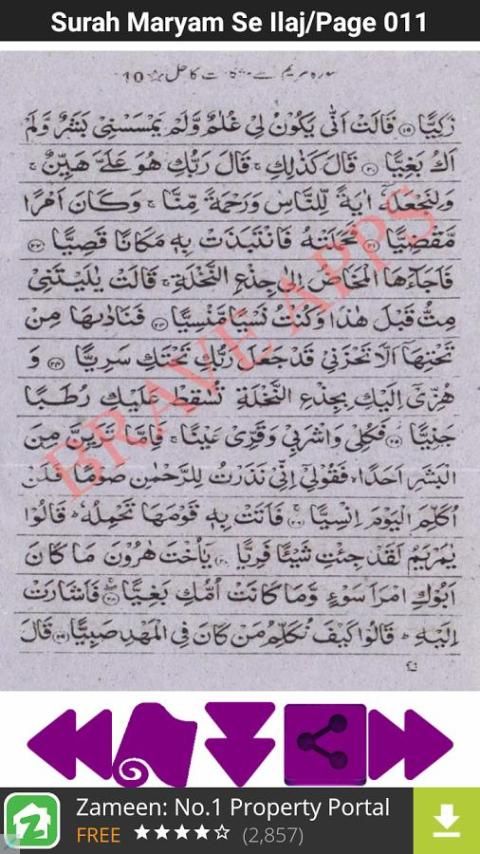 Surah Maryam Se Ilaj/Page 011
سورہ مریم سے مشکلات کا حل ☆ 10
زَكِيًّا ﴿۱۹﴾ قَالَتْ اَنّٰى يَكُوْنُ لِىْ غُلٰمٌ وَّلَمْ يَمْسَسْنِىْ بَشَرٌ وَّلَمْ
اَكُ بَغِيًّا ﴿۲۰﴾ قَالَ كَذٰلِكِ ۚ قَالَ رَبُّكِ هُوَ عَلَىَّ هَيِّنٌ ۚ
وَلِنَجْعَلَهٗۤ اٰيَةً لِّلنَّاسِ وَرَحْمَةً مِّنَّا ۚ وَكَانَ اَمْرًا
مَّقْضِيًّا ﴿۲۱﴾ فَحَمَلَتْهُ فَانْتَبَذَتْ بِهٖ مَكَانًا قَصِيًّا ﴿۲۲﴾
فَاَجَآءَهَا الْمَخَاضُ اِلٰى جِذْعِ النَّخْلَةِ ۚ قَالَتْ يٰلَيْتَنِىْ
مِتُّ قَبْلَ هٰذَا وَكُنْتُ نَسْيًا مَّنْسِيًّا ﴿۲۳﴾ فَنَادٰىهَا مِنْ
تَحْتِهَاۤ اَلَّا تَحْزَنِىْ قَدْ جَعَلَ رَبُّكِ تَحْتَكِ سَرِيًّا ﴿۲۴﴾ وَ
هُزِّىْۤ اِلَيْكِ بِجِذْعِ النَّخْلَةِ تُسٰقِطْ عَلَيْكِ رُطَبًا
جَنِيًّا ﴿۲۵﴾ فَكُلِىْ وَاشْرَبِىْ وَقَرِّىْ عَيْنًا ۚ فَاِمَّا تَرَيِنَّ مِنَ
الْبَشَرِ اَحَدًا ۙ فَقُوْلِىْۤ اِنِّىْ نَذَرْتُ لِلرَّحْمٰنِ صَوْمًا فَلَنْ
اُكَلِّمَ الْيَوْمَ اِنْسِيًّا ﴿۲۶﴾ فَاَتَتْ بِهٖ قَوْمَهَا تَحْمِلُهٗ ؕ قَالُوْا
يٰمَرْيَمُ لَقَدْ جِئْتِ شَيْئًا فَرِيًّا ﴿۲۷﴾ يٰۤاُخْتَ هٰرُوْنَ مَا كَانَ
اَبُوْكِ امْرَاَ سَوْءٍ وَّمَا كَانَتْ اُمُّكِ بَغِيًّا ﴿۲۸﴾ فَاَشَارَتْ
اِلَيْهِ ؕ قَالُوْا كَيْفَ نُكَلِّمُ مَنْ كَانَ فِى الْمَهْدِ صَبِيًّا ﴿۲۹﴾ قَالَ
BRAVE APPS
Zameen: No.1 Property Portal
FREE ★★★★☆ (2,857)